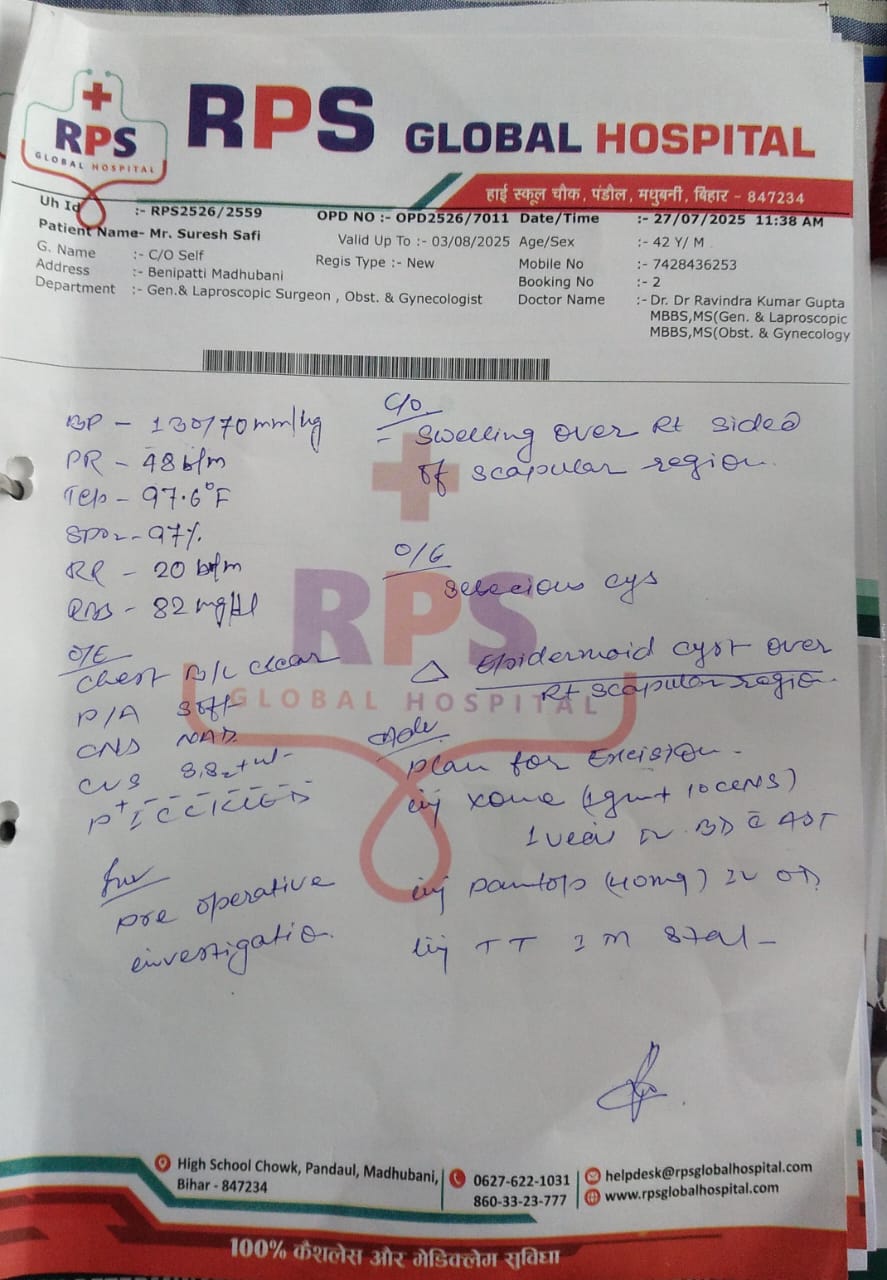 RPS
GLOBAL HOSPITAL
RPS GLOBAL HOSPITAL
हाई स्कूल चौक, पंडौल, मधुबनी, बिहार - 847234
Uh Id :- RPS2526/2559
OPD NO :- OPD2526/7011
Date/Time :- 27/07/2025 11:38 AM
Patient Name- Mr. Suresh Safi
Valid Up To :- 03/08/2025
Age/Sex :- 42 Y/ M
G. Name :- C/O Self
Regis Type :- New
Mobile No :- 7428436253
Address :- Benipatti Madhubani
Booking No :- 2
Department :- Gen.& Laproscopic Surgeon , Obst. & Gynecologist
Doctor Name :- Dr. Dr Ravindra Kumar Gupta
MBBS,MS(Gen. & Laproscopic
MBBS,MS(Obst. & Gynecology
BP - 130/70 mm/hg
PR - 48 b/m
Tep - 97.6°F
SPO2 - 97%
RR - 20 b/m
RBS - 82 mg/dl
O/E
Chest B/L clear
P/A soft
CNS NAD
CVS S1S2
for
pre operative
investigation.
C/O
- Swelling over Rt sided
of scapular region.
O/E
cys
△ Epidermoid cyst over
Rt scapular region.
Adv
plan for Excision -
inj xone (1gm+ 10
IV BD c AST
inj pantop (40mg) IV OD
inj TT IM stat -
RPS
GLOBAL HOSPITAL
High School Chowk, Pandaul, Madhubani,
Bihar - 847234
0627-622-1031
860-33-23-777
helpdesk@rpsglobalhospital.com
www.rpsglobalhospital.com
100% कैशलेस और मेडिक्लेम सुविधा